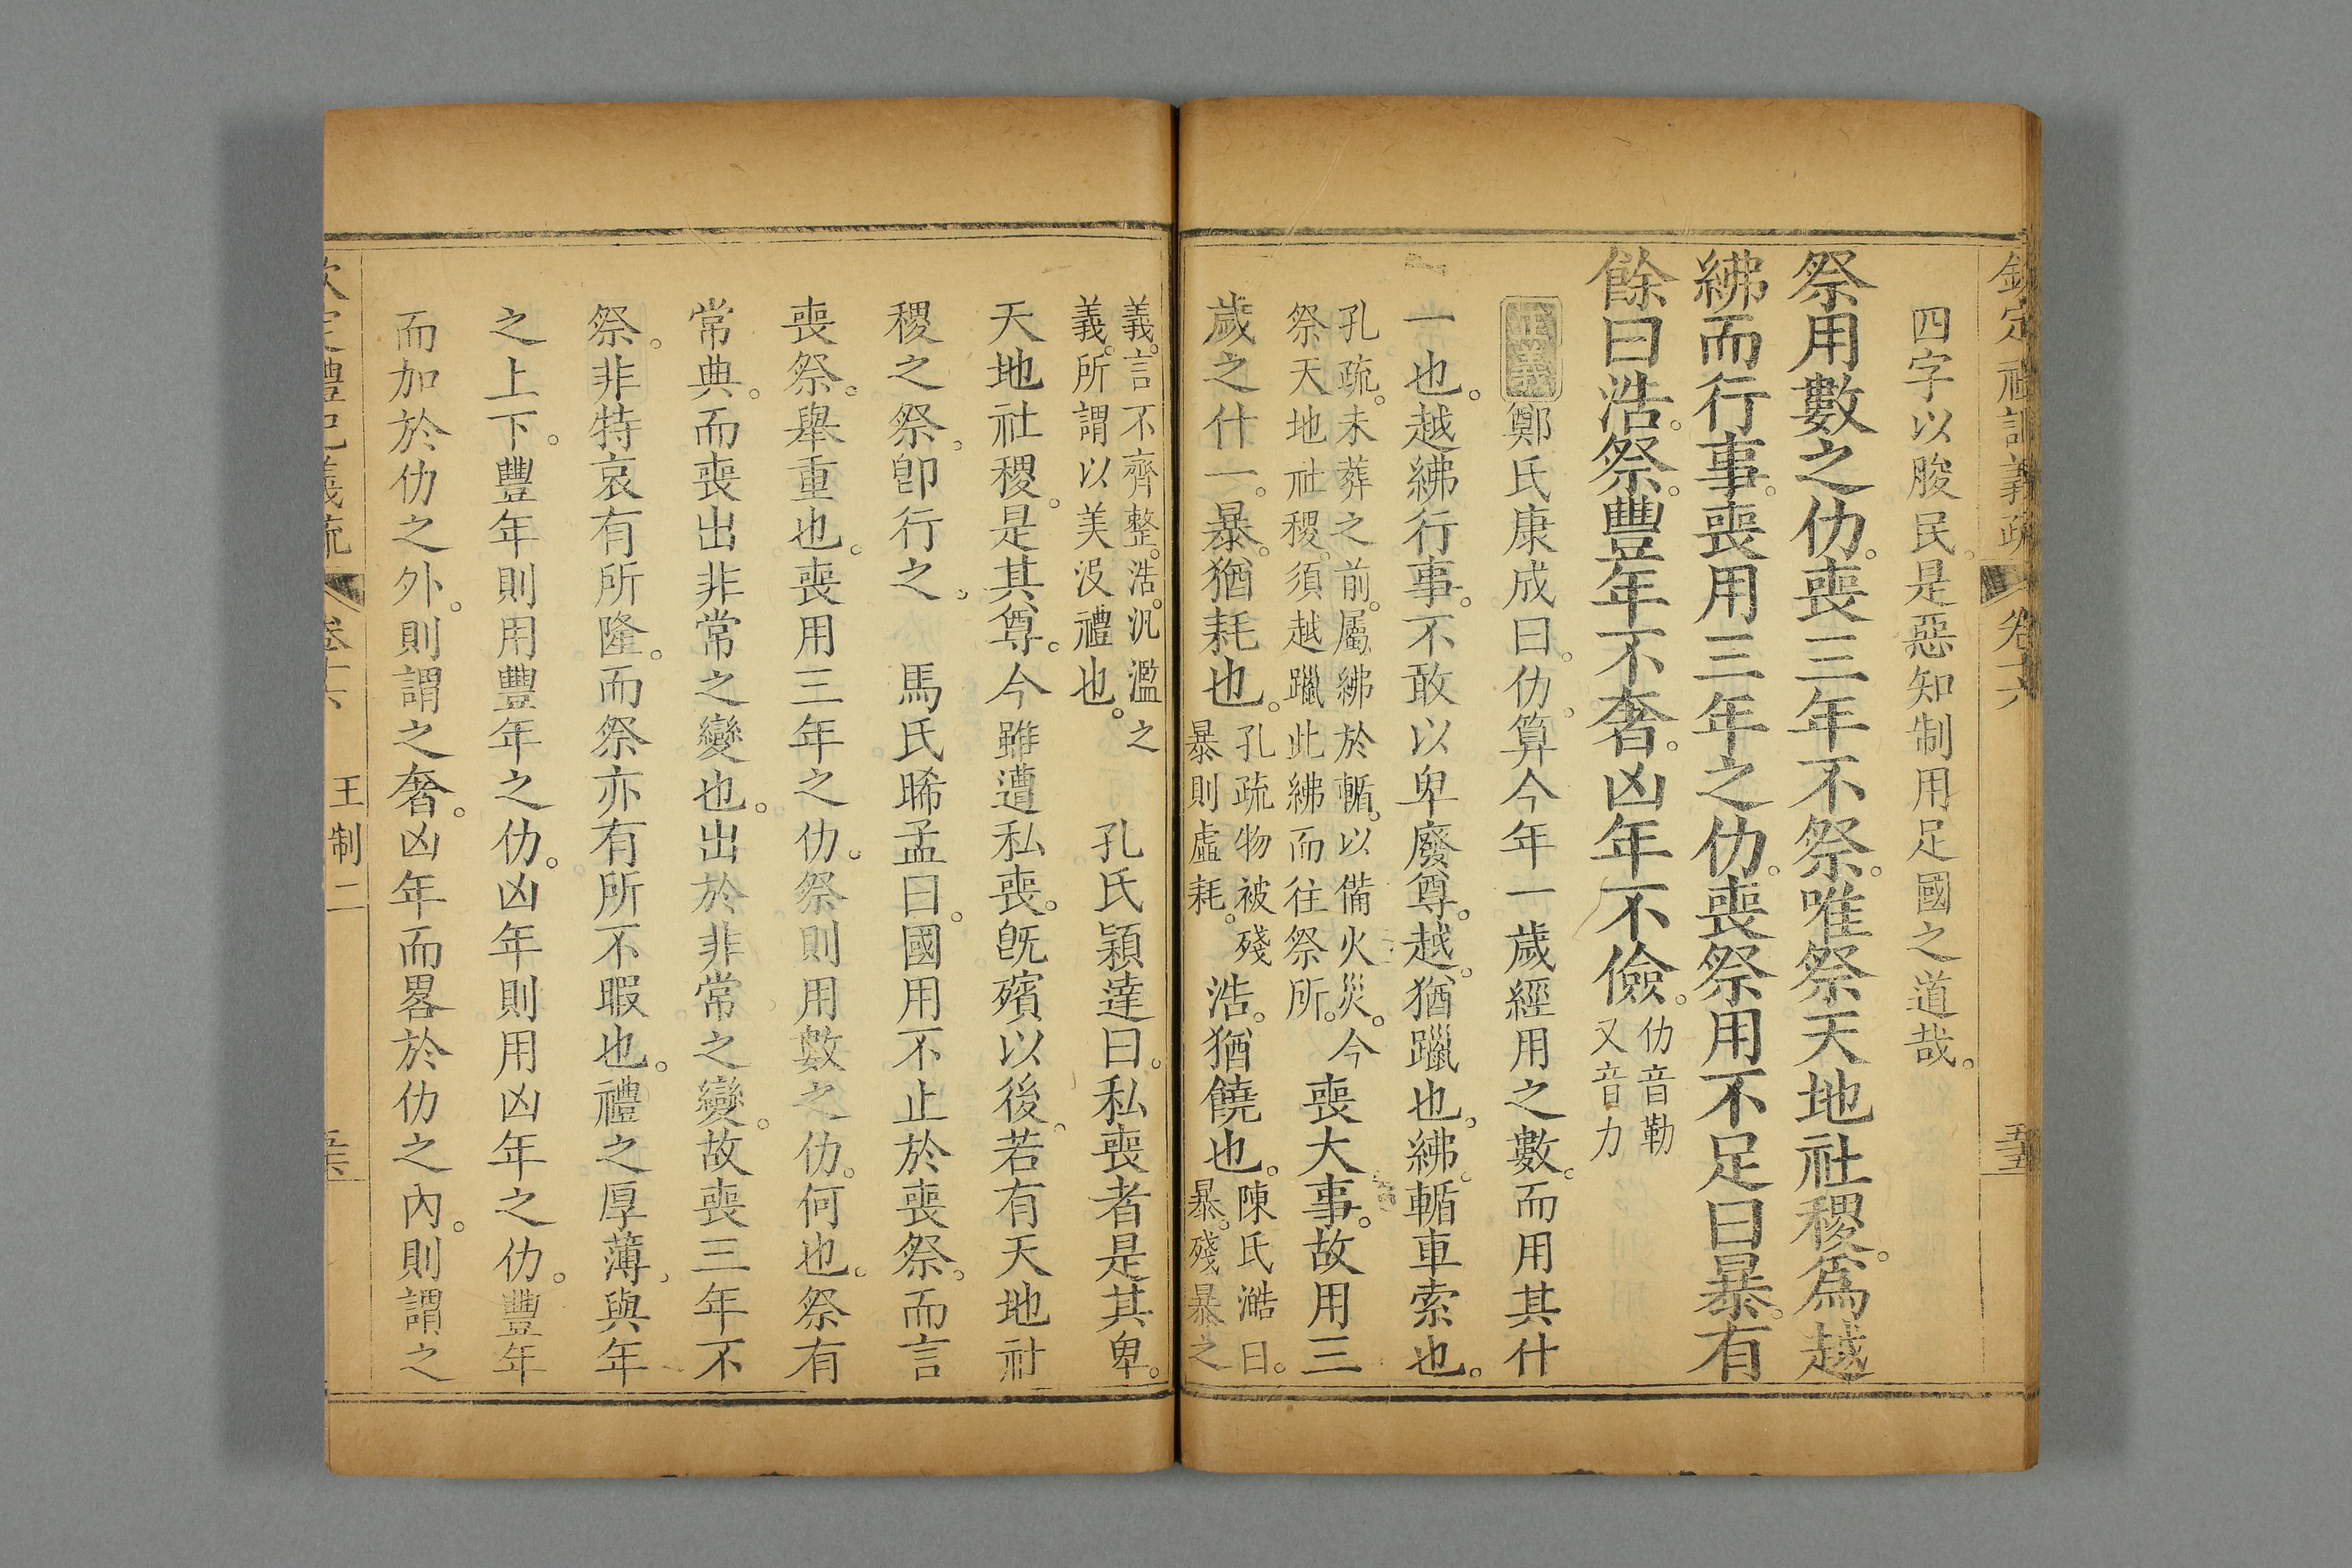 欽定禮記義疏 卷十六 五五
四字以朘民。是惡知制用足國之道哉。
祭用數之仂。喪三年不祭。唯祭天地社稷。爲越
紼而行事。喪用三年之仂。喪祭用不足曰暴。有
餘曰浩。祭。豐年不奢。凶年不儉。仂音勒
又音力
正義 鄭氏康成曰。仂。算今年一歲經用之數。而用其什
一也。越紼行事。不敢以卑廢尊。越。猶躐也。紼。輴車索也。
孔疏。未葬之前。屬紼於輴。以備火災。今
祭天地社稷。須越躐此紼而往祭所。喪大事。故用三
歲之什一。暴。猶耗也。孔疏物被殘
暴則虛耗。浩。猶饒也。陳氏澔曰。
暴。殘暴之
義。言不齊整。浩。汎濫之
義。所謂以美沒禮也。 孔氏穎達曰。私喪者是其卑。
天地社稷。是其尊。今雖遭私喪。旣殯以後。若有天地社
稷之祭。卽行之。 馬氏晞孟曰。國用不止於喪祭。而言
喪祭。舉重也。喪用三年之仂。祭則用數之仂。何也。祭有
常典。而喪出非常之變也。出於非常之變。故喪三年不
祭。非特哀有所隆。而祭亦有所不暇也。禮之厚薄。與年
之上下。豐年則用豐年之仂。凶年則用凶年之仂。豐年
而加於仂之外。則謂之奢。凶年而畧於仂之內。則謂之
欽定禮記義疏 卷十六 王制二